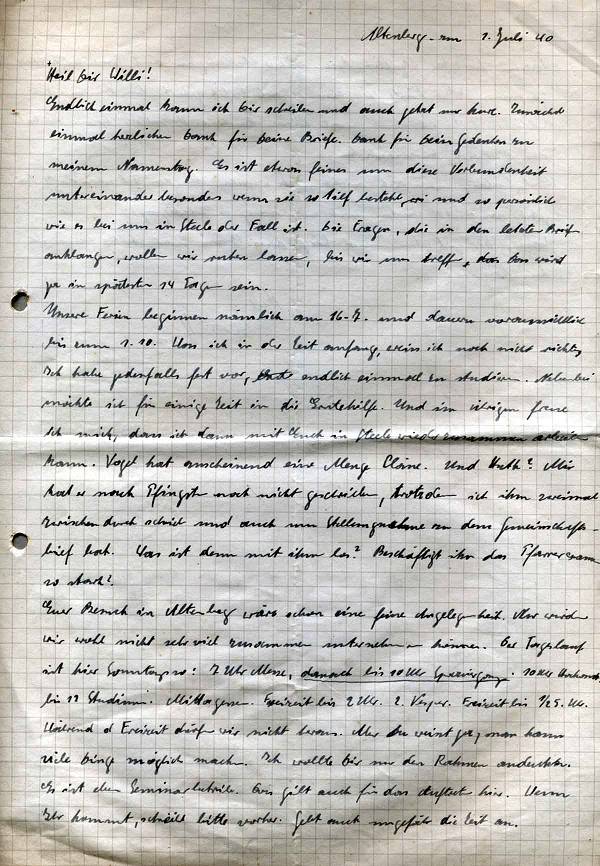 Altenberg, am 1. Juli 40
Heil Dir Willi!
Endlich einmal kann ich Dir schreiben und auch jetzt nur kurz. Zunächst
einmal herzlichen Dank für Deine Briefe. Dank für Dein Gedenken zu
meinem Namenstag. Es ist etwas feines um diese Verbundenheit
untereinander besonders wenn sie so tief besteht, wie und so persönlich
wie es bei uns in Steele der Fall ist. Die Fragen, die in den letzten Brief
anklangen, wollen wir ruhen lassen, bis wir uns treffen, das wird
ja in spätestens 14 Tagen sein.
Unsere Ferien beginnen nämlich am 16.7. und dauern voraussichtlich
bis zum 1.10. Was ich in der Zeit anfang, weiss ich noch nicht richtig.
Ich habe jedenfalls fest vor, endlich einmal zu studieren. Nebenbei
möchte ich für einige Zeit in die Erntehilfe. Und im übrigen freue
ich mich, dass ich dann mit Euch in Steele wieder zusammen arbeiten
kann. Vogel hat anscheinend eine Menge Pläne. Und? Mir
hat er nach Pfingsten noch nicht geschrieben, trotzdem ich ihm zweimal
zwischendurch schrieb und auch um Stellungnahme zu dem Gemeinschafts-
brief bat. Was ist denn mit ihm los? Beschäftigt ihn das Pfarrexamen
so stark?
Euer Besuch in Altenberg wäre schon eine feine Angelegenheit. Nur würden
wir wohl nicht sehr viel zusammen unternehmen können. Der Tageslauf
ist hier Sonntags so: 7 Uhr Messe, danach bis 10 Uhr Spaziergang. 10 Uhr Hochamt
bis 12 Studium. Mittagessen. Freizeit bis 2 Uhr. 2. Vesper. Freizeit bis 1/2 5 Uhr.
Während d Freizeit dürfen wir nicht heraus. Aber Du weisst ja, man kann
viele Dinge möglich machen. Ich wollte Dir nur den Rahmen andeuten.
Es ist eben Seminarbetrieb. Das gilt auch für das hier. Wenn
Ihr kommt, schreibt bitte vorher. Gebt auch ungefähr die Zeit an.